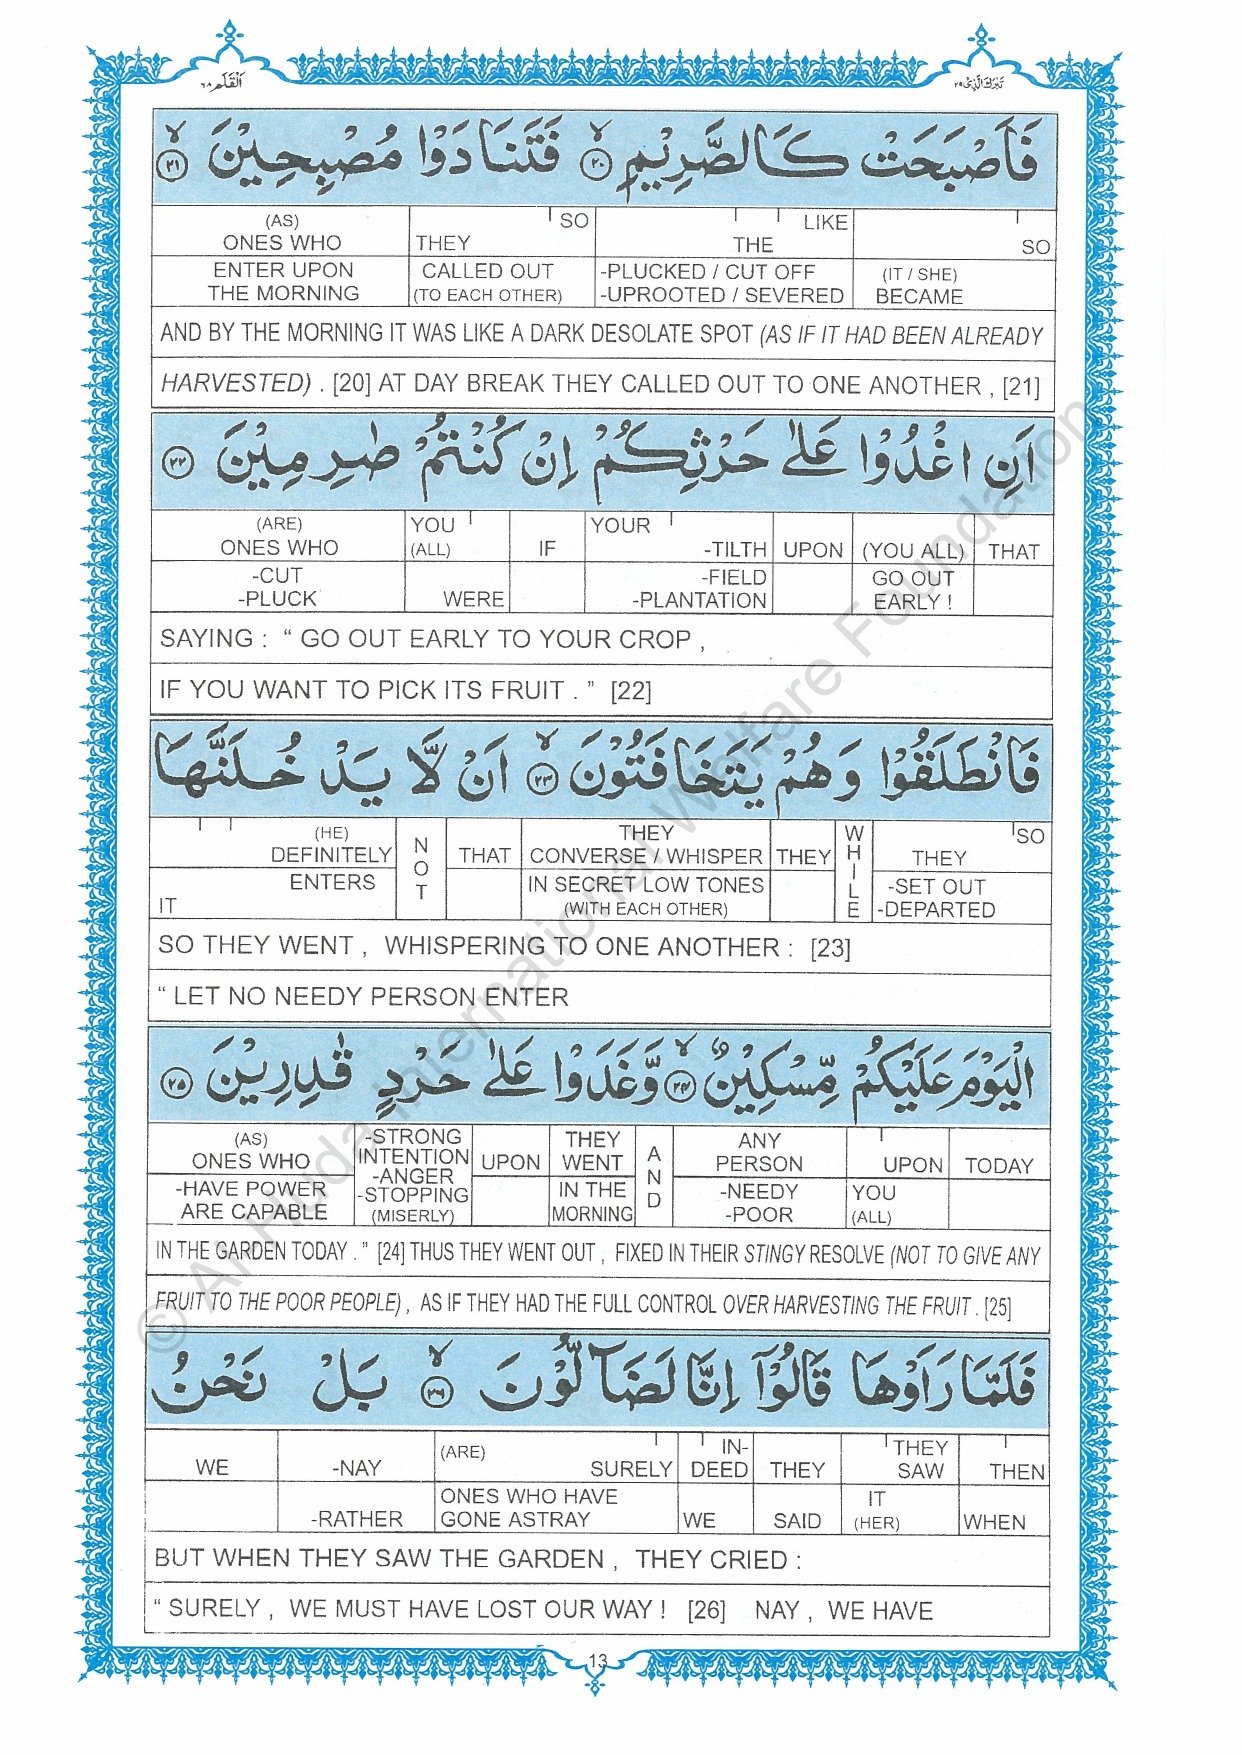 تَبٰرَكَ الَّذِيْ ٢٩
اَلْقَلَم ٦٨
فَاَصْبَحَتْ كَالصَّرِيْمِ ۙ﴿٢٠﴾ فَتَنَادَوْا مُصْبِحِيْنَ ۙ﴿٢١﴾
(AS) SO LIKE
ONES WHO THEY THE SO
ENTER UPON CALLED OUT -PLUCKED / CUT OFF (IT / SHE)
THE MORNING (TO EACH OTHER) -UPROOTED / SEVERED BECAME
AND BY THE MORNING IT WAS LIKE A DARK DESOLATE SPOT (AS IF IT HAD BEEN ALREADY
HARVESTED) . [20] AT DAY BREAK THEY CALLED OUT TO ONE ANOTHER , [21]
اَنِ اغْدُوْا عَلٰى حَرْثِكُمْ اِنْ كُنْتُمْ صٰرِمِيْنَ ﴿٢٢﴾
(ARE) YOU YOUR
ONES WHO (ALL) IF -TILTH UPON (YOU ALL) THAT
-CUT -FIELD GO OUT
-PLUCK WERE -PLANTATION EARLY !
SAYING : “ GO OUT EARLY TO YOUR CROP ,
IF YOU WANT TO PICK ITS FRUIT . ” [22]
فَانْطَلَقُوْا وَهُمْ يَتَخَافَتُوْنَ ۙ﴿٢٣﴾ اَنْ لَّا يَدْخُلَنَّهَا
(HE) NOT THEY WHILE SO
DEFINITELY THAT CONVERSE / WHISPER THEY THEY
ENTERS IN SECRET LOW TONES -SET OUT
IT (WITH EACH OTHER) -DEPARTED
SO THEY WENT , WHISPERING TO ONE ANOTHER : [23]
“ LET NO NEEDY PERSON ENTER
الْيَوْمَ عَلَيْكُمْ مِّسْكِيْنٌ ۙ﴿٢٤﴾ وَّغَدَوْا عَلٰى حَرْدٍ قٰدِرِيْنَ ﴿٢٥﴾
(AS) -STRONG THEY AND ANY
ONES WHO INTENTION UPON WENT PERSON UPON TODAY
-HAVE POWER -ANGER IN THE -NEEDY YOU
ARE CAPABLE -STOPPING MORNING -POOR (ALL)
(MISERLY)
IN THE GARDEN TODAY . ” [24] THUS THEY WENT OUT , FIXED IN THEIR STINGY RESOLVE (NOT TO GIVE ANY
FRUIT TO THE POOR PEOPLE) , AS IF THEY HAD THE FULL CONTROL OVER HARVESTING THE FRUIT . [25]
فَلَمَّا رَاَوْهَا قَالُوْٓا اِنَّا لَضَآلُّوْنَ ۙ﴿٢٦﴾ بَلْ نَحْنُ
(ARE) IN- THEY
WE -NAY SURELY DEED THEY SAW THEN
ONES WHO HAVE IT
-RATHER GONE ASTRAY WE SAID (HER) WHEN
BUT WHEN THEY SAW THE GARDEN , THEY CRIED :
“ SURELY , WE MUST HAVE LOST OUR WAY ! [26] NAY , WE HAVE
13
© Al Huda International Welfare Foundation